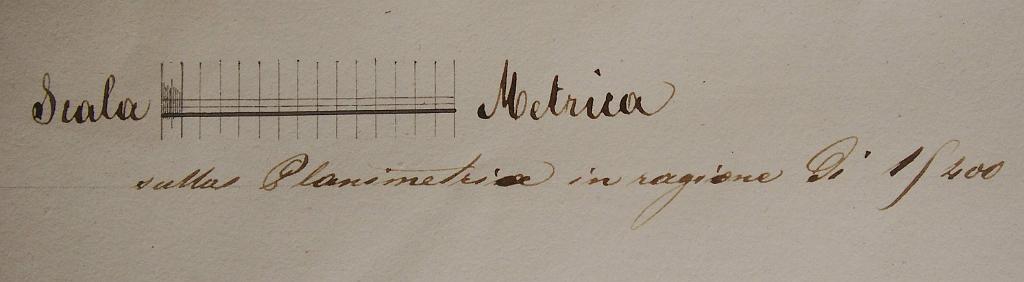 Scala Metrica
sulla Planimetria in ragione di 1/400